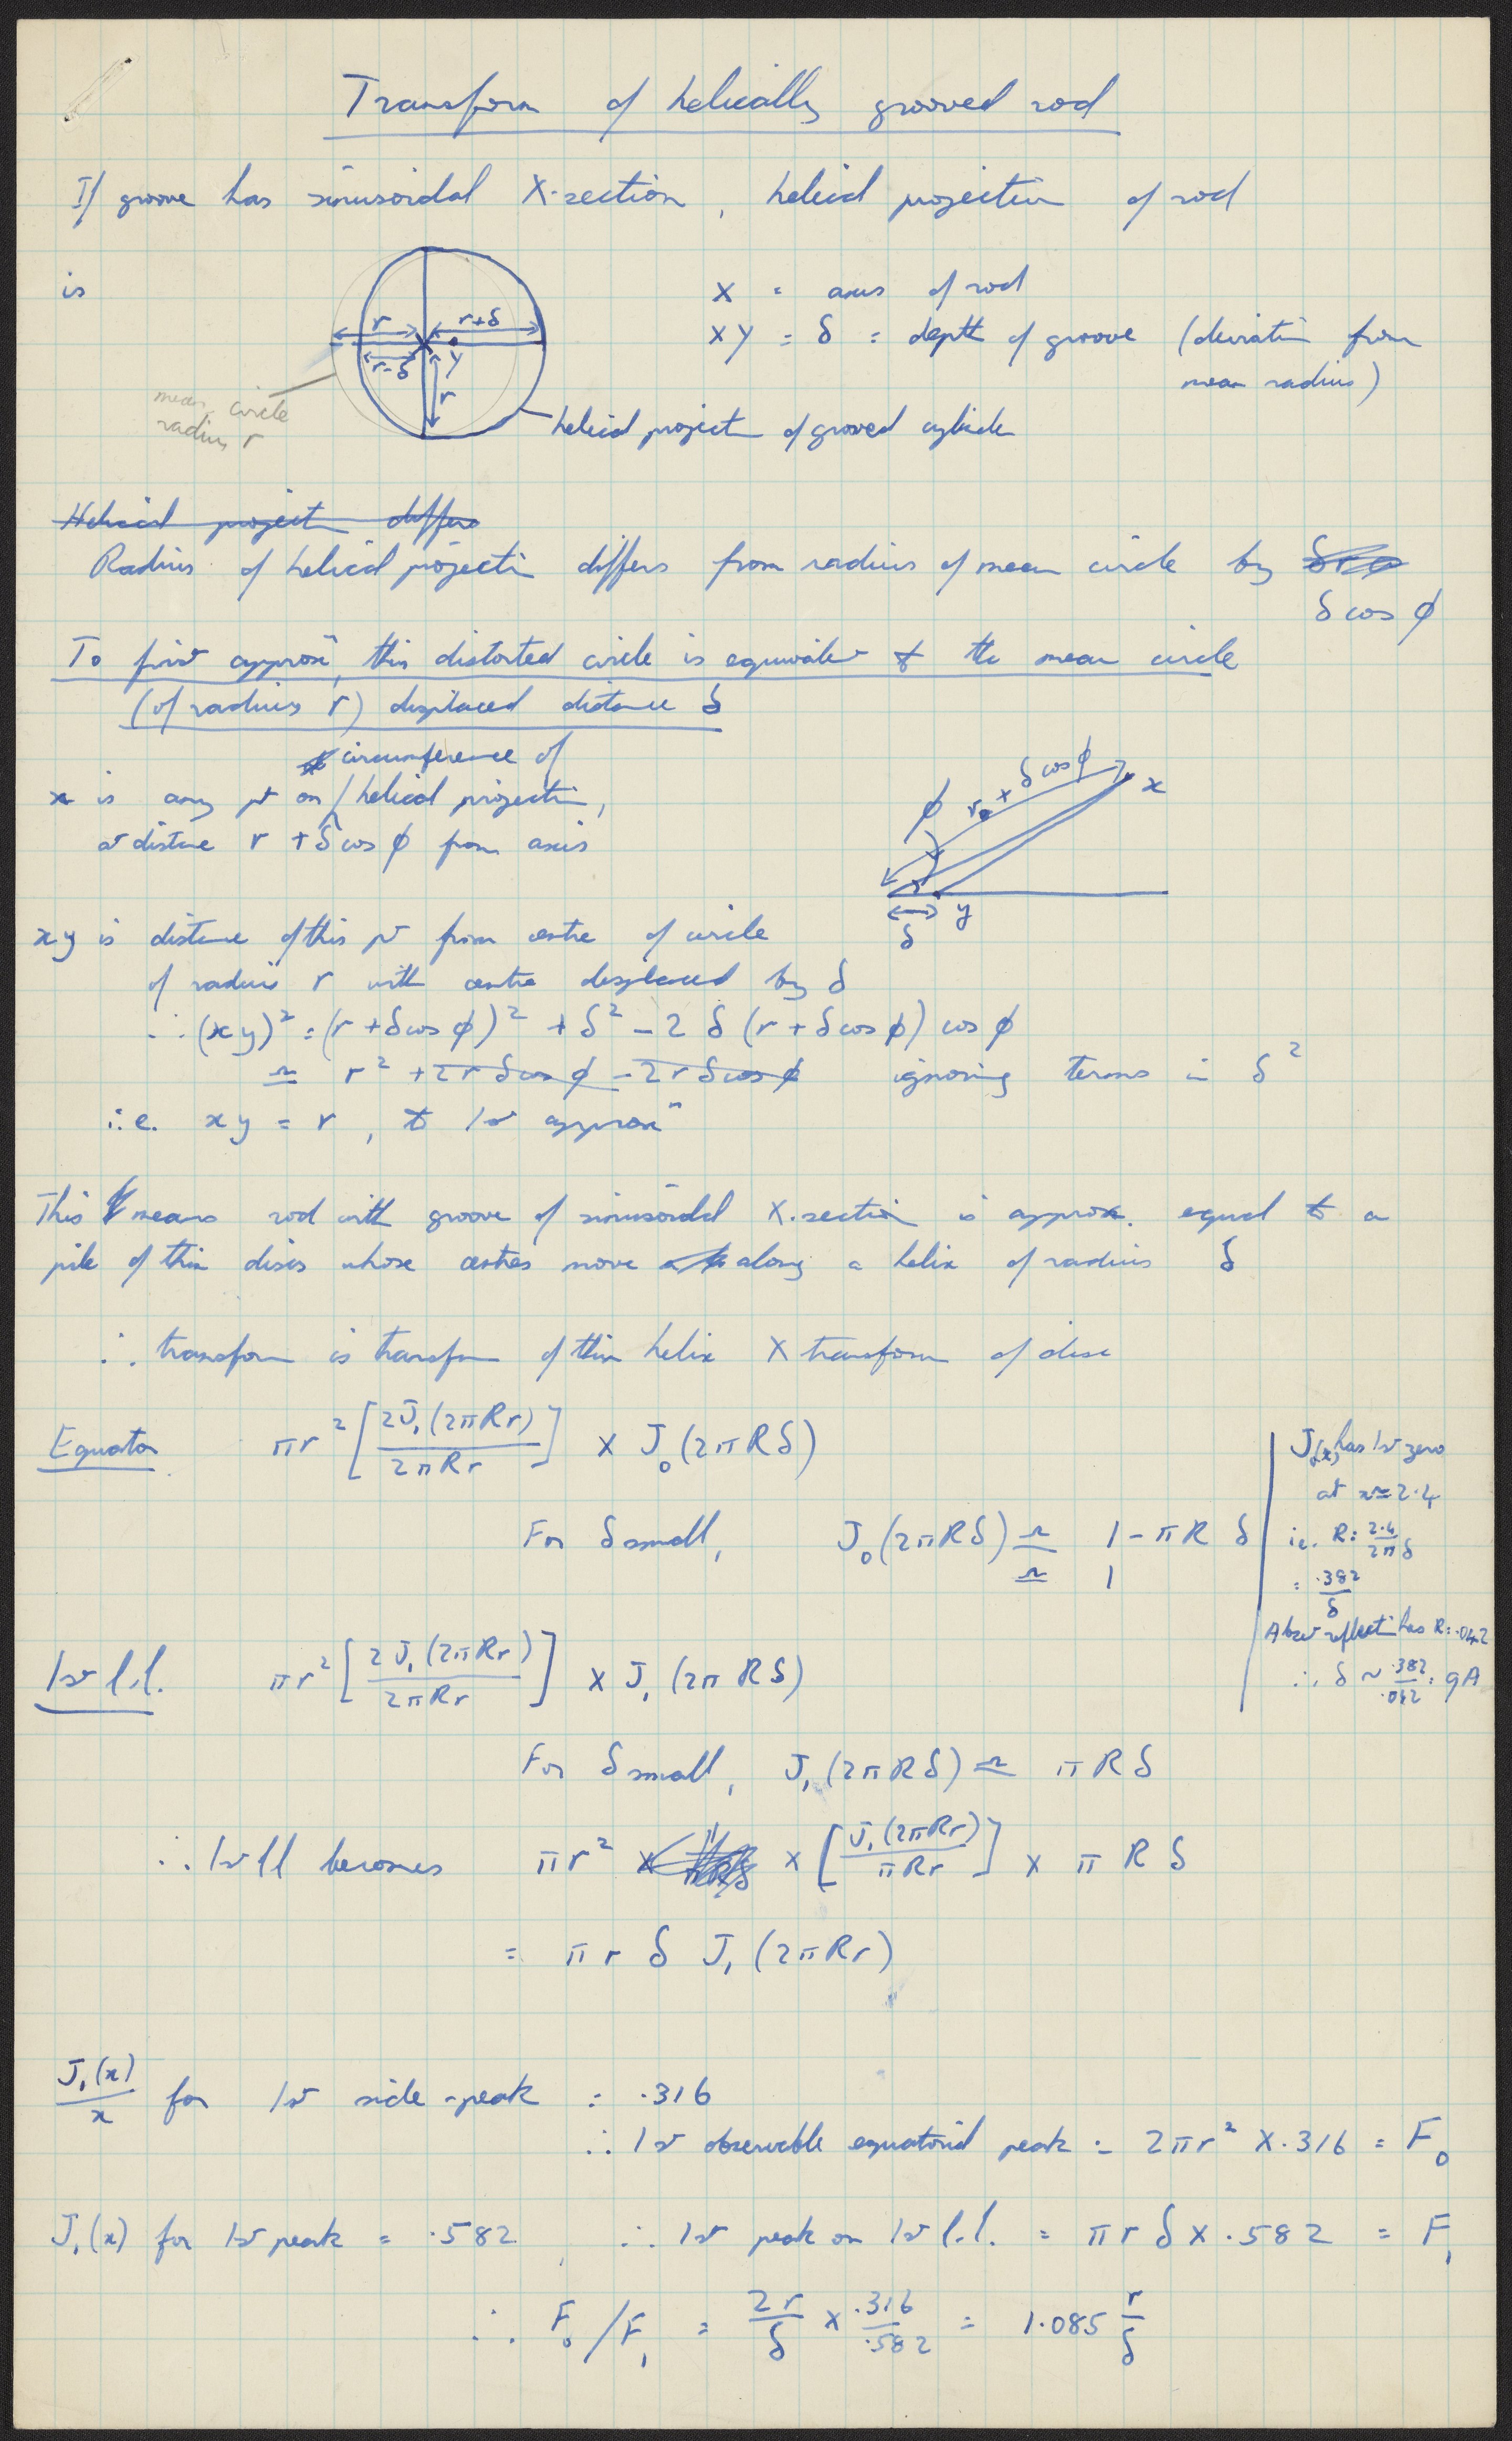 Transform of helically grooved rod
If groove has sinusoidal X-section, helical projection of rod
is
r
r+δ
r-δ
Y
r
mean circle
radius r
helical projectn of grooved cylinder
X = axis of rod
XY = δ = depth of groove (deviatn from
mean radius)
Helical projectn differs
Radius of helical projectn differs from radius of mean circle by
δ cos φ
To first approxn, this distorted circle is equivalent to the mean circle
(of radius r) displaced distance δ
circumference of
x is any pt on / helical projectn,
at distance r + δ cos φ from axis
φ
r + δ cos φ
x
y
δ
xy is distance of this pt from centre of circle
of radius r with centre displaced by δ
∴ (xy)² = (r + δ cos φ)² + δ² - 2 δ (r + δ cos φ) cos φ
≏ r² + 2r δ cos φ - 2r δ cos φ ignoring terms in δ²
i.e. xy = r, to 1st approxn
This means rod with groove of sinusoidal X.section is approx. equal to a
pile of thin discs whose centres move along a helix of radius δ
∴ transform is transfm of thin helix X transform of disc
Equator πr² [2J₁(2πRr) / 2πRr] × J₀(2πRδ)
For δ small, J₀(2πRδ) ≏ 1 - πR δ
≏ 1
J₀(x) has 1st zero
at x ≏ 2.4
i.e. R = 2.4 / 2πδ
= .382 / δ
Abser reflectn has R = .042
∴ δ ~ .382 / .042 = 9A
1st l.l. πr² [2J₁(2πRr) / 2πRr] × J₁(2πRδ)
For δ small, J₁(2πRδ) ≏ πRδ
∴ 1st ll becomes πr² × [J₁(2πRr) / πRr] × π R δ
= π r δ J₁(2πRr)
J₁(x) / x for 1st side-peak = .316
∴ 1st observable equatorial peak = 2πr² × .316 = F₀
J₁(x) for 1st peak = .582, ∴ 1st peak on 1st l.l. = π r δ × .582 = F₁
∴ F₀/F₁ = 2r/δ × .316/.582 = 1.085 r/δ